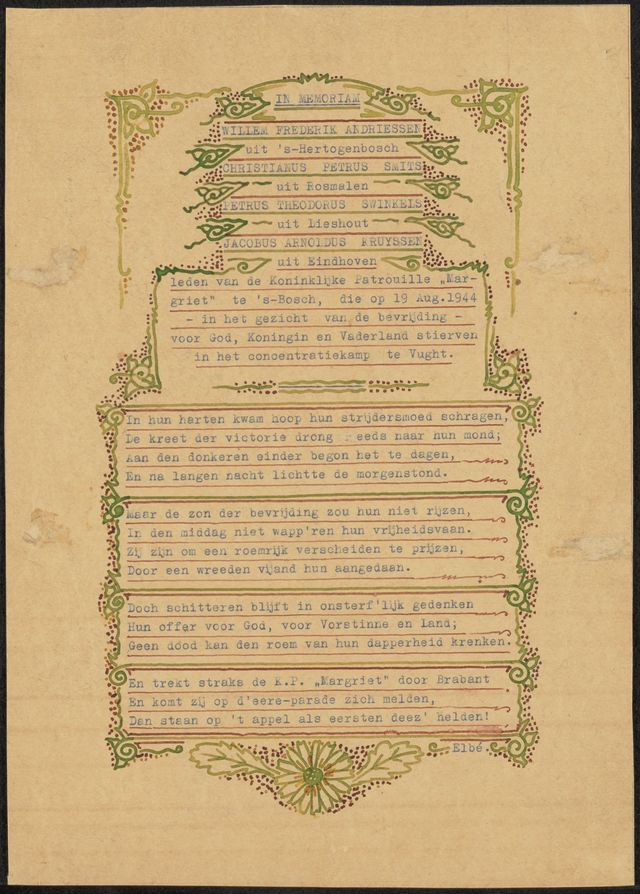 IN MEMORIAM
WILLEM FREDERIK ANDRIESSEN
uit 's-Hertogenbosch
CHRISTIANUS PETRUS SMITS
uit Rosmalen
PETRUS THEODORUS SWINKELS
uit Lieshout
JACOBUS ARNOLDUS KRUYSSEN
uit Eindhoven
leden van de Koninklijke Patrouille „Mar-
griet" te 's-Bosch, die op 19 Aug.1944
- in het gezicht van de bevrijding -
voor God, Koningin en Vaderland stierven
in het concentratiekamp te Vught.
In hun harten kwam hoop hun strijdersmoed schragen,
De kreet der victorie drong reeds naar hun mond;
Aan den donkeren einder begon het te dagen,
En na langen nacht lichtte de morgenstond.
Maar de zon der bevrijding zou hun niet rijzen,
In den middag niet wapp'ren hun vrijheidsvaan.
Zij zijn om een roemrijk verscheiden te prijzen,
Door een wreeden vijand hun aangedaan.
Doch schitteren blijft in onsterf'lijk gedenken
Hun offer voor God, voor Vorstinne en land;
Geen dood kan den roem van hun dapperheid krenken.
En trekt straks de K.P. „Margriet" door Brabant
En komt zij op d'eere-parade zich melden,
Dan staan op 't appel als eersten deez' helden!
Elbé.